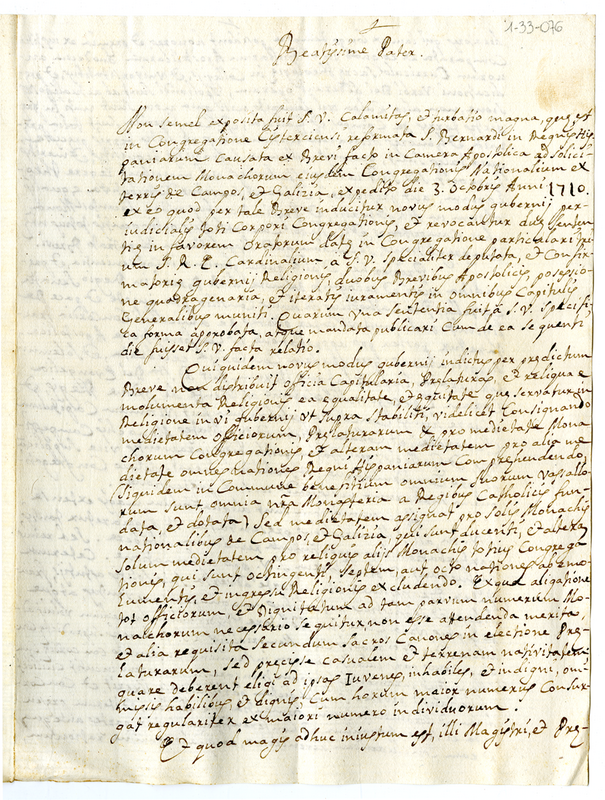 1-33-076
Beatissime Pater.
Non semel exposita fuit S. V. Calamitas, et turbatio magna, que est
in Congregatione Cisterciensi reformata S. Bernardi in Regnis His
paniarum Causata ex Brevi facto in Camera Apostolica ad solici
tationem Monachorum eiusdem Congregationis Nationalium ex
terris de Campos, et Galizia, expedito die 3. Decembris Anni 1710.
ex eo quod per tale Breve inducitur novus modus gubernij per
iudicialis toti Corpori Congregationis, et revocantur due senten
tie in favorem Oratorum late in Congregatione particulari
S. R. E. Cardinalium a S. V. specialiter deputata, et Confir
matorie gubernij Religionis, duobus Brevibus Apostolicis, possessio
ne quadragenaria, et iteratis iuramentis in omnibus Capitulis
Generalibus muniti. Quarum una sententia fuit à S. V. specifi
ca forma approbata, atque mandata publicari Cum de ea sequenti
die fuisset S. V. facta relatio.
Qui quidem novus modus gubernij indictus per predictum
Breve non distribuit officia Capitularia, Prelaturas, et reliqua e
molumenta Religionis ea equalitate, et equitate que servatur in
Religione in vi gubernij ut supra stabiliti, videlicet Consignando
medietatem officiorum, Prelaturarum pro medietate Mona
chorum Congregationis et alteram medietatem pro alia me
dietate omnes nationes Regni Hispaniarum Comprehendendo,
(siquidem in Commune beneficium omnium suorum Vasallo
rum sunt omnia nra Monasteria a Regibus Catholicis fun
data, et dotata) sed medietatem assignat pro solis Monachis
nationalibus de Campos, et Galizia, qui sunt ducenti, et alteram
solum medietatem pro reliquis alijs Monachis totius Congrega
tionis, qui sunt octingenti, septem, aut octo nationes ab emo
lumentis, et ingressu Religionis excludendo. Ex qua aligatione
tot officiorum, et Dignitatum ad tam parvum numerum Mo
nachorum necessario sequitur non esse attendenda merita,
et alia requisita secundum sacros Canones in electione Pre
laturarum, sed precise casualem et terrenam nativitatem
quare deberent eligi ad ipsas Iuvenes, inhabiles, et indigni, omi
missis habilibus et dignis; Cum horum maior numerus Consur
gat regulariter ex maiori numero individuorum.
Et quod magis adhuc iniustum est, illi Magistri, et Pre-